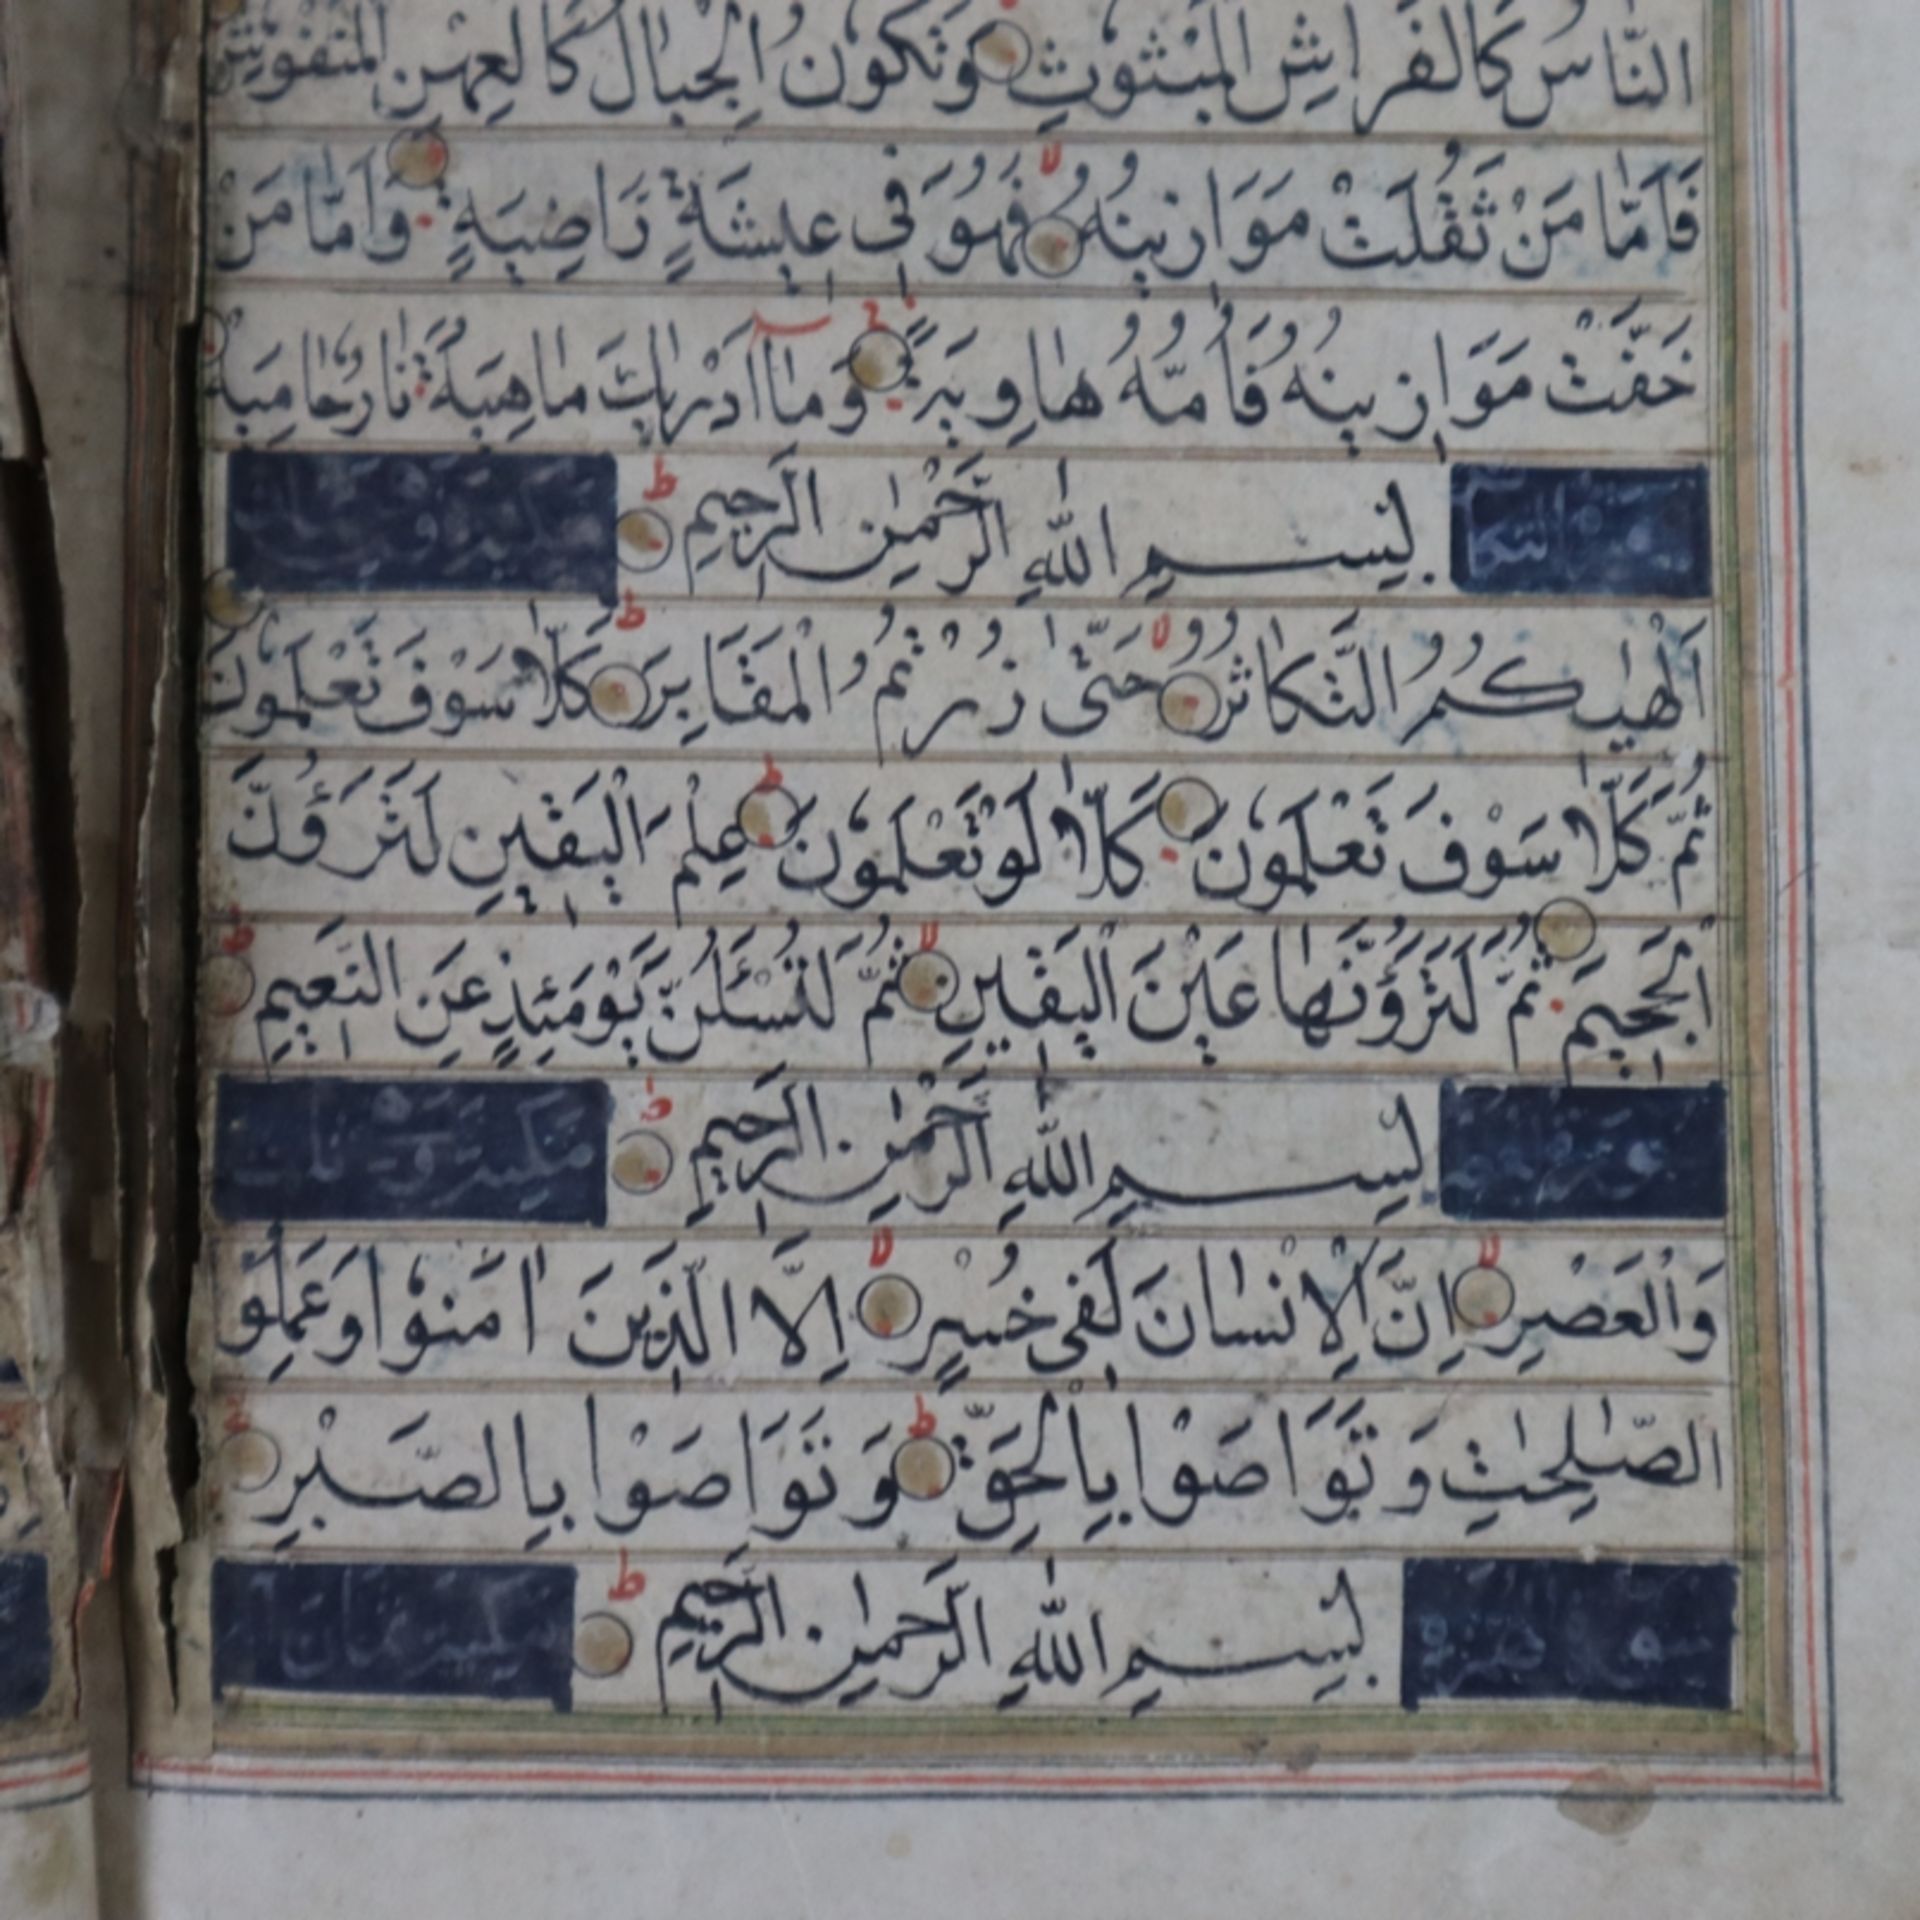 النَّاسُ كَالْفَرَاشِ الْمَبْثُوثِ وَتَكُونُ الْجِبَالُ كَالْعِهْنِ الْمَنْفُوشِ
فَاَمَّا مَنْ ثَقُلَتْ مَوَازِينُهُ فَهُوَ فِى عِيشَةٍ رَاضِيَةٍ وَاَمَّا مَنْ
خَفَّتْ مَوَازِينُهُ فَاُمُّهُ هَاوِيَةٌ وَمَآ اَدْرٰىكَ مَاهِيَهْ نَارٌ حَامِيَةٌ
بِسْمِ اللّٰهِ الرَّحْمٰنِ الرَّحِيمِ
اَلْهٰىكُمُ التَّكَاثُرُ حَتّٰى زُرْتُمُ الْمَقَابِرَ كَلَّا سَوْفَ تَعْلَمُونَ
ثُمَّ كَلَّا سَوْفَ تَعْلَمُونَ كَلَّا لَوْ تَعْلَمُونَ عِلْمَ الْيَقِينِ لَتَرَوُنَّ
الْجَحِيمَ ثُمَّ لَتَرَوُنَّهَا عَيْنَ الْيَقِينِ ثُمَّ لَتُسْئَلُنَّ يَوْمَئِذٍ عَنِ النَّعِيمِ
مكية وهى ثلث بِسْمِ اللّٰهِ الرَّحْمٰنِ الرَّحِيمِ
وَالْعَصْرِ اِنَّ الْاِنْسَانَ لَفِى خُسْرٍ اِلَّا الَّذِينَ اٰمَنُوا وَعَمِلُوا
الصّٰلِحٰتِ وَتَوَاصَوْا بِالْحَقِّ وَتَوَاصَوْا بِالصَّبْرِ
بِسْمِ اللّٰهِ الرَّحْمٰنِ الرَّحِيمِ